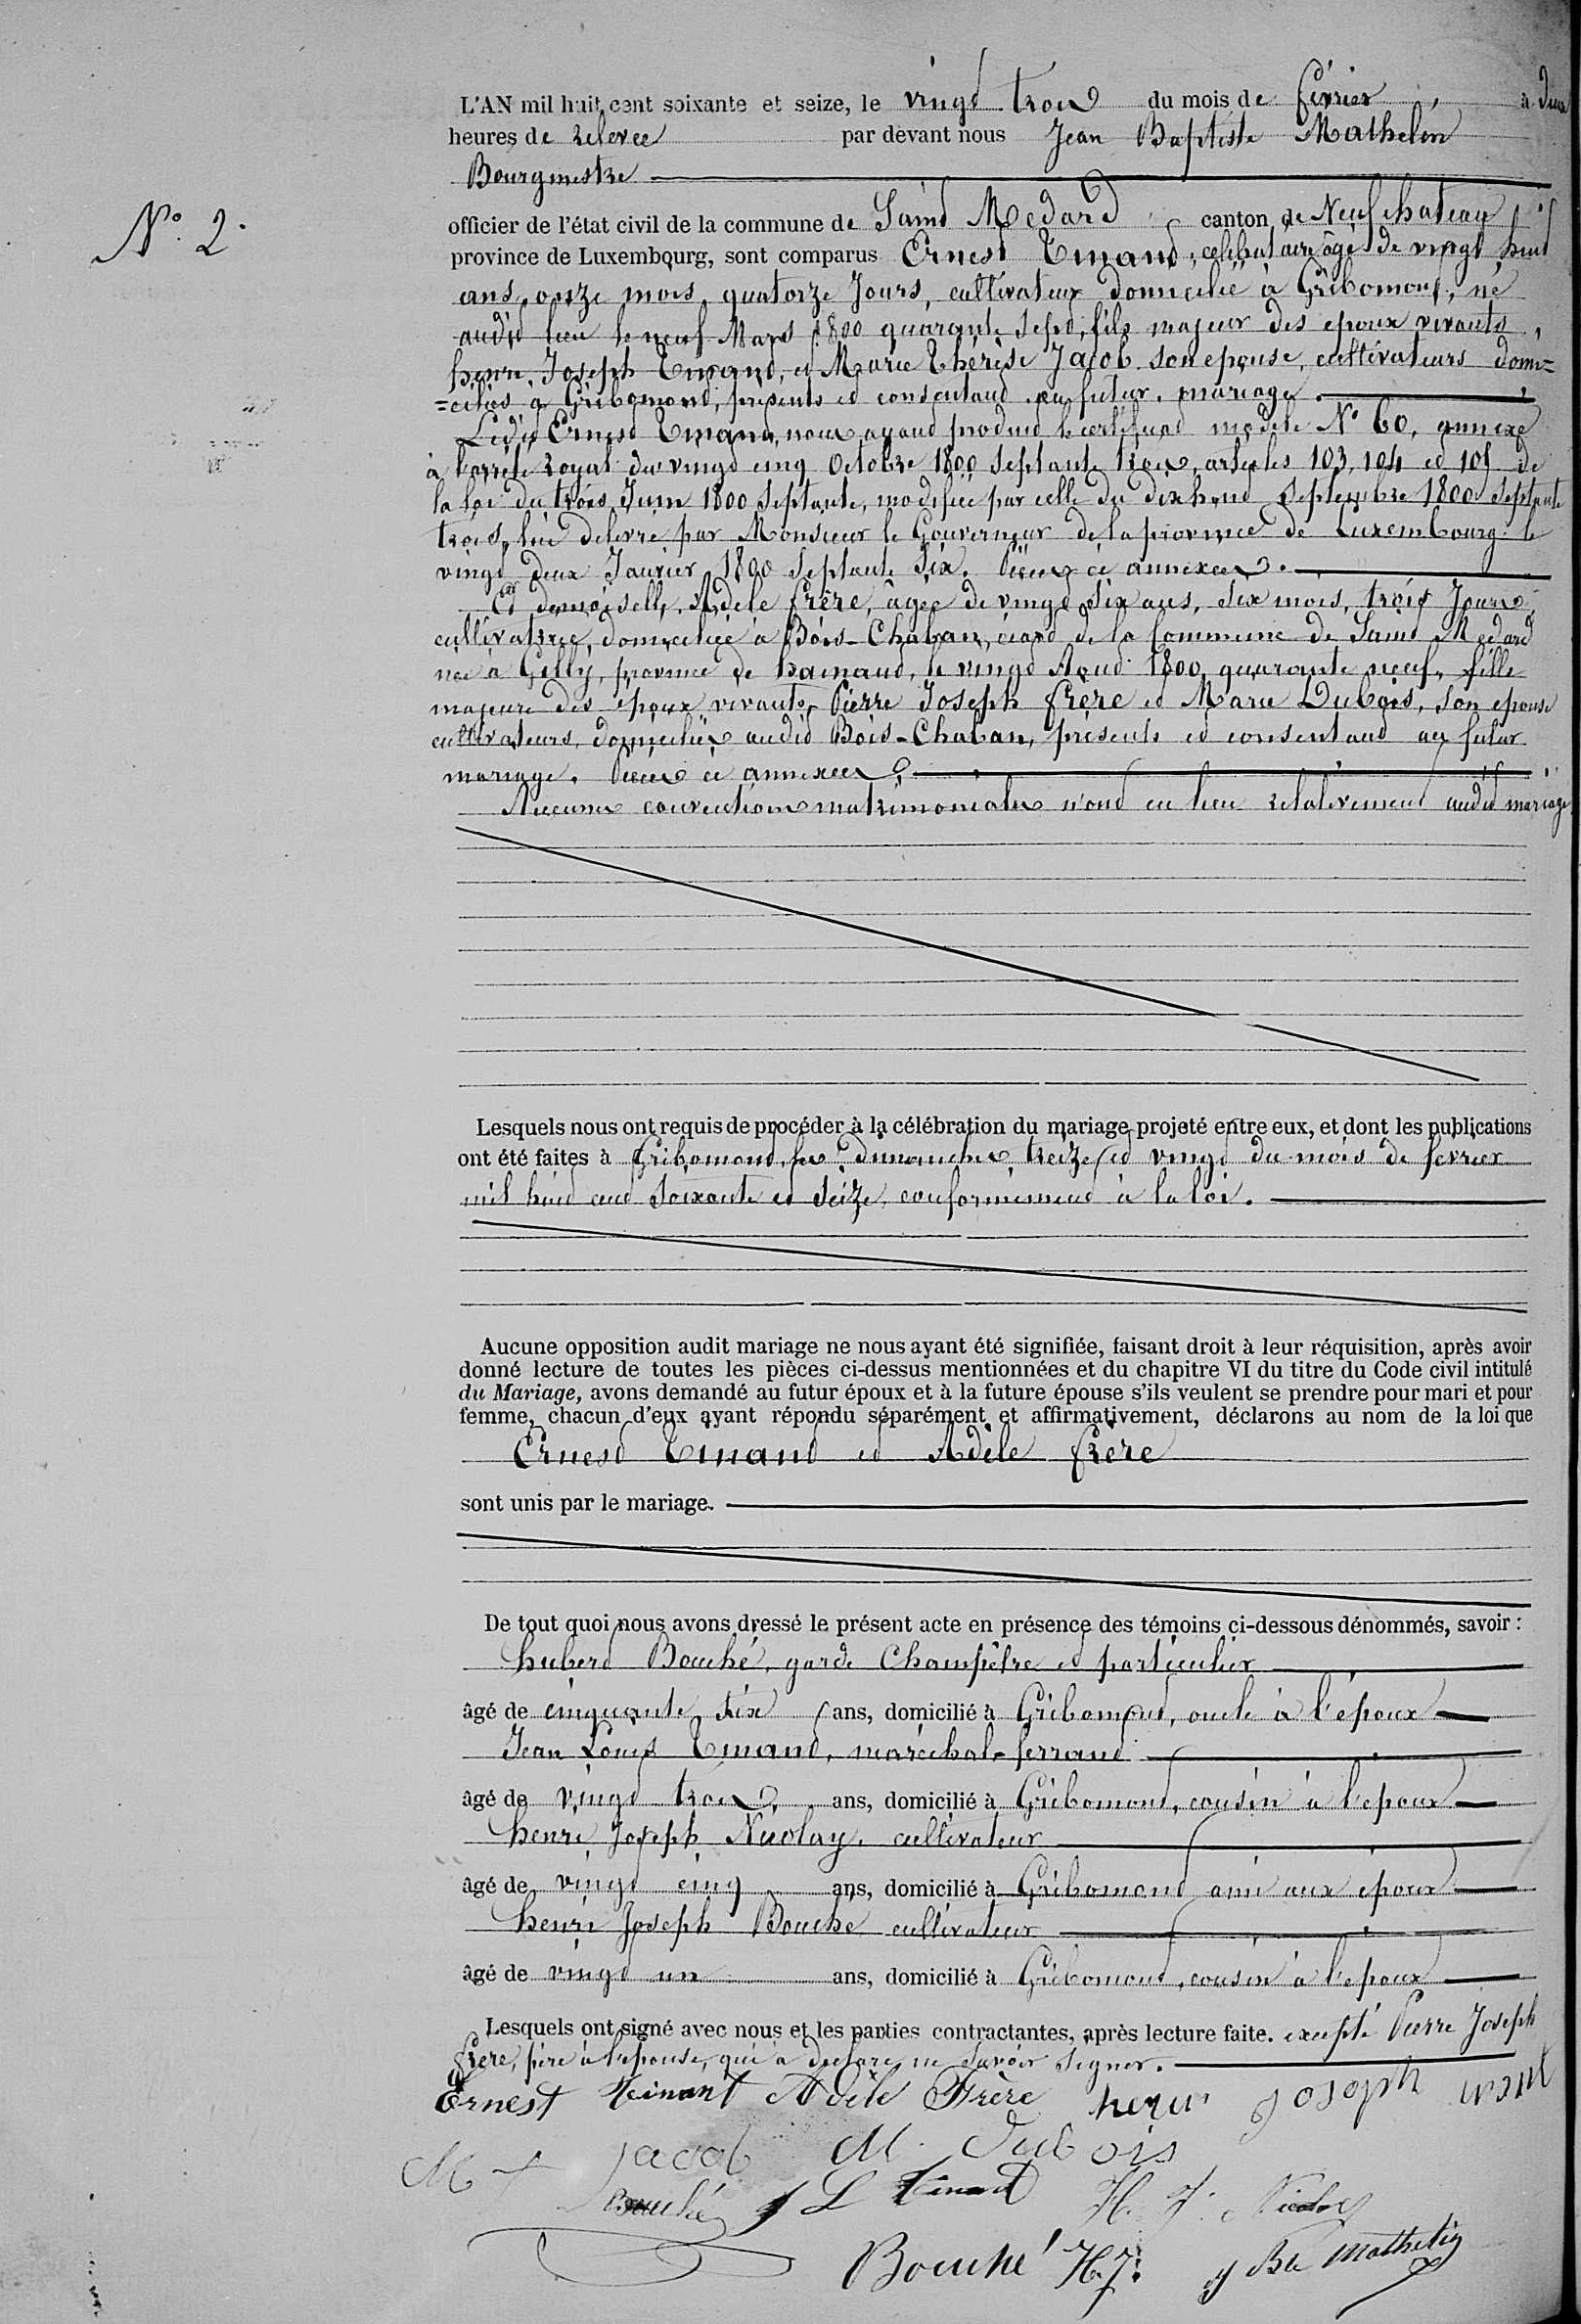 L'AN mil huit cent soixante et seize, le vingt trois du mois de février, à deux
heures de relevée par devant nous Jean Baptiste Mathelin
Bourgmestre
N° 2.
officier de l'état civil de la commune de Saint Médard canton de Neufchateau
province de Luxembourg, sont comparus Ernest Tinant, célibataire âgé de vingt huit
ans, onze mois, quatorze Jours, cultivateur domicilié à Gribomont, né
audit lieu le neuf Mars 1800 quarante sept, fils majeur des époux vivants,
henri Joseph Tinant, et Marie Thérèse Jacob son épouse, cultivateurs domi=
=ciliés à Gribomont, présents et consentant au futur mariage.
Ledit Ernest Tinant, nous ayant produit le certificat modèle N° 60, annexé
à l'arrêté Royal du vingt cinq Octobre 1800 septante trois, articles 103, 104 et 105 de
la loi du trois Juin 1800 septante, modifiée par celle du dix huit Septembre 1800 septante
trois, lui délivré par Monsieur le Gouverneur de la province de Luxembourg le
vingt deux Janvier 1800 septante six. Pièces ci annexées.
Et demoiselle Adèle frère, âgée de vingt six ans, six mois, trois Jours,
cultivatrice, domiciliée à Bois-Chaban, écart de la Commune de Saint Médard
née à Gilly, province de hainaut, le vingt Août 1800 quarante neuf, fille
majeure des époux vivants, Pierre Joseph frère et Marie Dubois, son épouse
cultivateurs, domiciliés audit Bois-Chaban, présents et consentant au futur
mariage. Pièces ci annexées.
Aucunes conventions matrimoniales n'ont eu lieu relativement audit mariage.
Lesquels nous ont requis de procéder à la célébration du mariage projeté entre eux, et dont les publications
ont été faites à Gribomont, les Dimanches, treize et vingt du mois de février
mil huit cent soixante et seize, conformément à la loi.
Aucune opposition audit mariage ne nous ayant été signifiée, faisant droit à leur réquisition, après avoir
donné lecture de toutes les pièces ci-dessus mentionnées et du chapitre VI du titre du Code civil intitulé
du Mariage, avons demandé au futur époux et à la future épouse s'ils veulent se prendre pour mari et pour
femme, chacun d'eux ayant répondu séparément et affirmativement, déclarons au nom de la loi que
Ernest Tinant et Adèle frère
sont unis par le mariage.
De tout quoi nous avons dressé le présent acte en présence des témoins ci-dessous dénommés, savoir :
hubert Bouché, garde Champêtre et particulier
âgé de cinquante six ans, domicilié à Gribomont, oncle à l'époux
Jean Louis Tinant, maréchal-ferrant
âgé de vingt trois ans, domicilié à Gribomont, cousin à l'époux
henri Joseph Nicolay, cultivateur
âgé de vingt cinq ans, domicilié à Gribomont ami aux époux
henri Joseph Bouché cultivateur
âgé de vingt un ans, domicilié à Gribomont, cousin à l'époux
Lesquels ont signé avec nous et les parties contractantes, après lecture faite. excepté Pierre Joseph
frère, père à l'épouse, qui a déclaré ne savoir signer.
Ernest Tinant Adèle Frère henri Joseph
M t Jacob M. Dubois
Bouché J L Tinant H. J. Nicolay
Bouché H.J. J Bte Mathelin